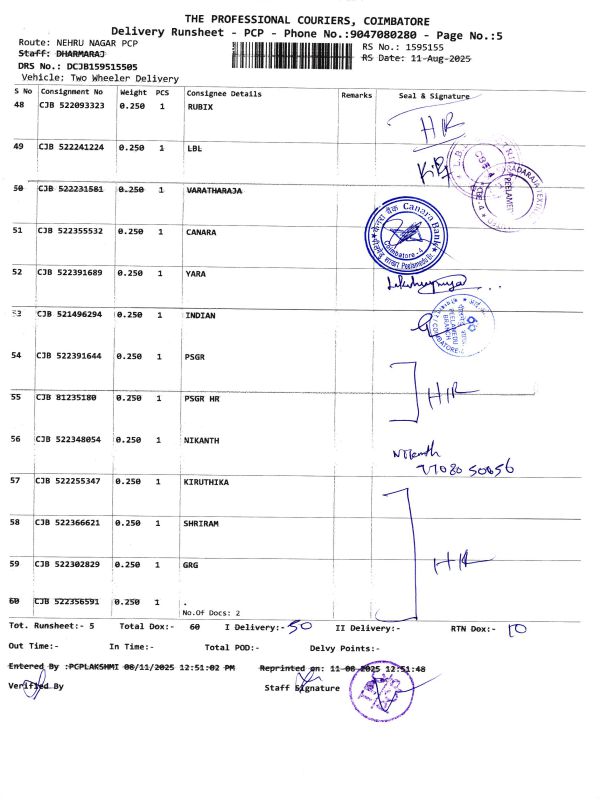 THE PROFESSIONAL COURIERS, COIMBATORE
Delivery Runsheet - PCP - Phone No.:9047080280 - Page No.:5
Route: NEHRU NAGAR PCP
RS No.: 1595155
Staff: DHARMARAJ
RS Date: 11-Aug-2025
DRS No.: DCJB159515505
Vehicle: Two Wheeler Delivery
S No Consignment No Weight PCS Consignee Details Remarks Seal & Signature
48 CJB 522093323 0.250 1 RUBIX HR
49 CJB 522241224 0.250 1 LBL
50 CJB 522231581 0.250 1 VARATHARAJA
51 CJB 522355532 0.250 1 CANARA
केनरा बैंक Canara Bank
Coimbatore-4
Peelamedu Br
52 CJB 522391689 0.250 1 YARA
53 CJB 521496294 0.250 1 INDIAN
PEELAMEDU
BRANCH
COIMBATORE
54 CJB 522391644 0.250 1 PSGR
HR
55 CJB 81235180 0.250 1 PSGR HR
56 CJB 522348054 0.250 1 NIKANTH
57 CJB 522255347 0.250 1 KIRUTHIKA
58 CJB 522366621 0.250 1 SHRIRAM
59 CJB 522302829 0.250 1 GRG HR
60 CJB 522356591 0.250 1 .
No.Of Docs: 2
Tot. Runsheet:- 5 Total Dox:- 60 I Delivery:- 50 II Delivery:- RTN Dox:- 10
Out Time:- In Time:- Total POD:- Delvy Points:-
Entered By :PCPLAKSHMI 08/11/2025 12:51:02 PM Reprinted on: 11-08-2025 12:51:48
Verified By Staff Signature